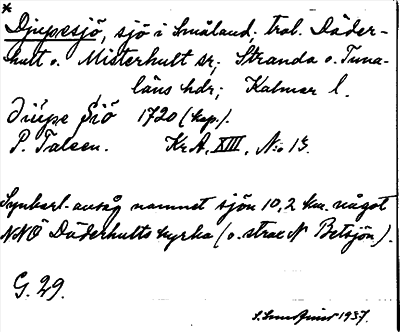 *
Djupesjö, sjö i Småland; trol. Däder-
hult o. Misterhult sr; Stranda o. Tuna-
läns hdr; Kalmar l.
Diüpe Siö 1720 (kop.).
P. Taleen. KrA, XIII, N:o 13.
Synbarl. avsåg namnet sjön 10,2 km. något
NNÖ Däderhults kyrka (o. strax N Betsjön).
G. 29.
1937.